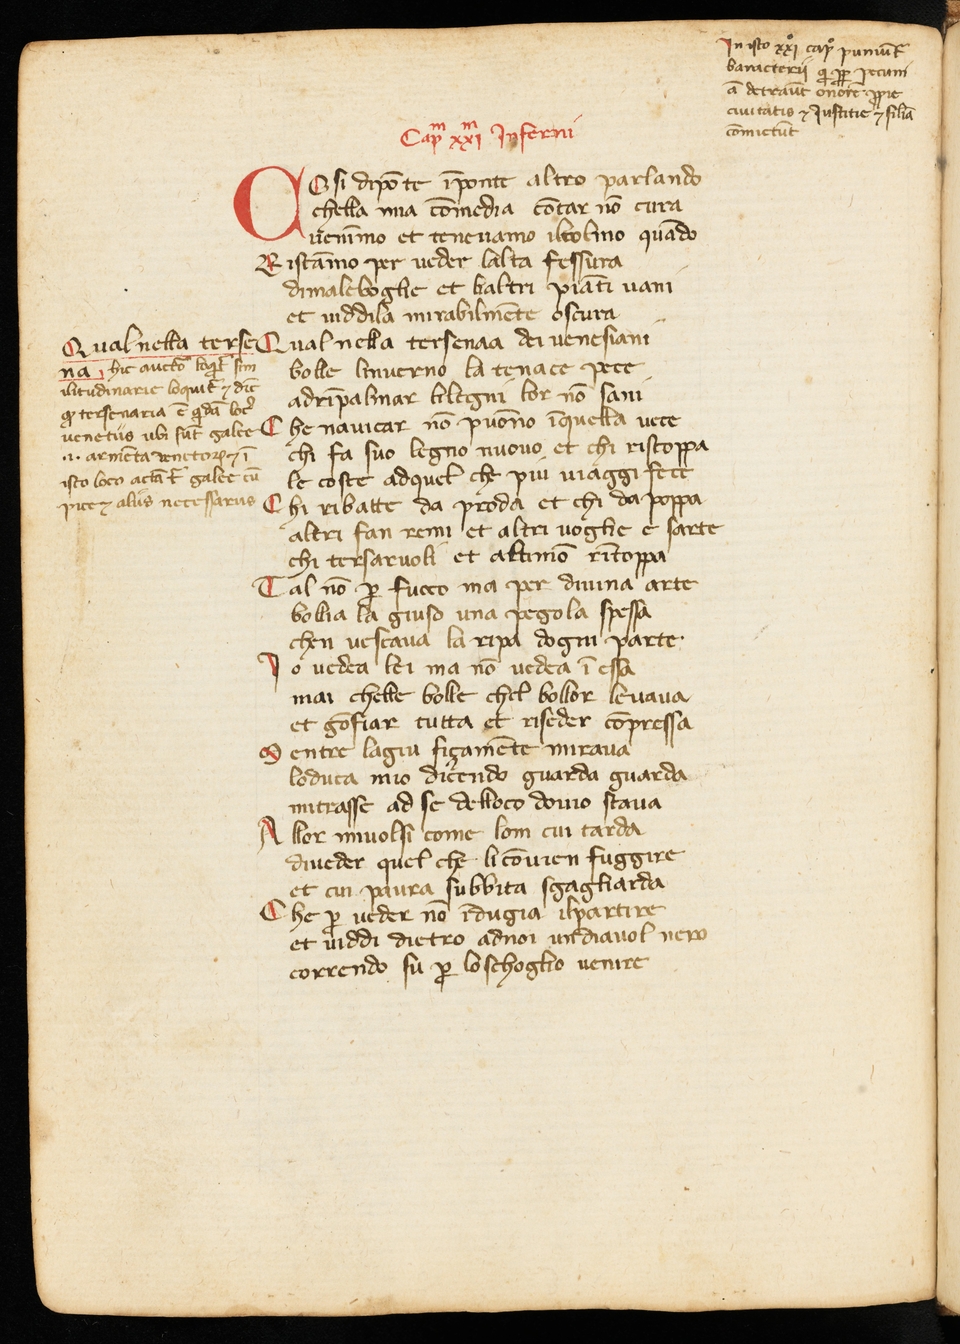 In isto xxi° cap° puniũt͛
baracterii q̇ ꝓꝑ pecuni
ã detraũt onorẽ ꝓprie
ciuitatis ⁊ Justitie ⁊ similia
cõmictũt
Capᵐ xxiᵐ Inferni
COsi dipõte ĩponte altro parlando
chella mia cõmedia cõtar nõ cura
uẽnimo et tenevamo ilcolmo quãdo
Ristãmo per ueder laltra fessura
dimaleboghe et laltri piãti uani
et uiddila mirabilmẽte oscura
Qual nella tersenaa dei uenesiani
bolle linuerno la tenace pece
adrĩpalmar lilegni lor nõ sani
Che navicar nõ puõno ĩquella uece
chi fa suo legno nuouo et chi ristoppa
le coste adquel che piu uiaggi fece
Chi ribatte da proda et chi da poppa
altri fan remi et altri uoghe e sarte
chi tersaruoli et altimõ rĩtoppa
Tal nõ ꝑ fuoco ma per diuina arte
bollia la giuso una pegola spessa
chen uescaua la ripa dogni parte
Io uedea lei ma nõ uedea ĩ essa
mai chelle bolle chel bollor leuaua
et gõfiar tutta et riseder cõpressa
Mentre lagiu fiçamẽte miraua
loduca mio dicendo guarda guarda
mitrasse ad se delloco douio staua
Allor miuolsi come lom cui tarda
diueder quel che li cõuien fuggire
et cui paura subbita sgagliarda
Che ꝑ ueder nõ ĩdugia ilpartire
et uiddi dietro adnoi undiauol nero
correndo su ꝑ loschoglio uenire
Qual nella terse
na hic auctor sim
ilitudinarie loquit͛ ⁊ dic̃
qͦ tersenaria ẽ q̇dã loc᷒
venetiis ubi sũt galee
.i. armẽta venetorꝫ ⁊ ĩ
isto loco galee cũ
pice ⁊ aliis necessariis